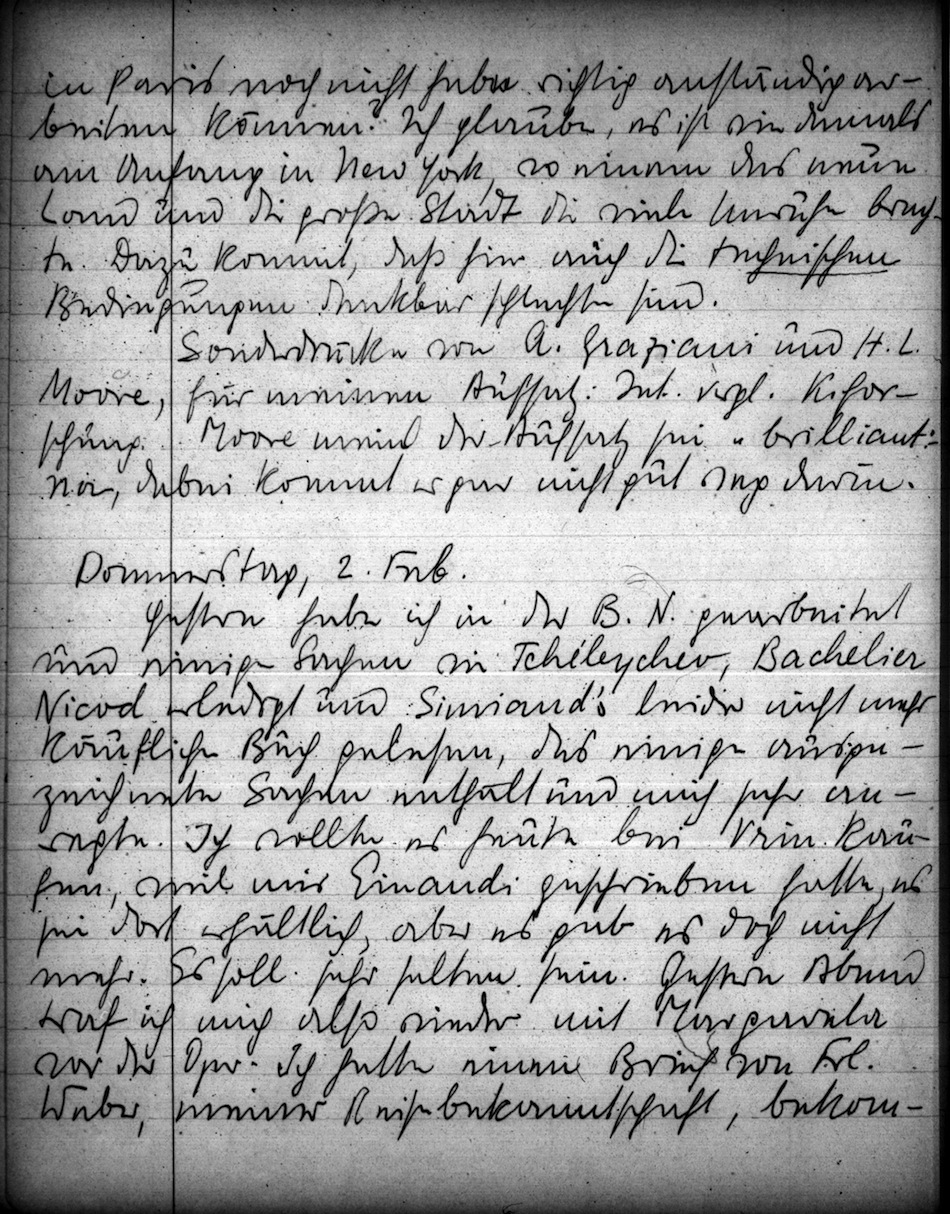 in Paris noch nicht habe richtig anständig ar-
beiten können. Ich glaube, es ist wie damals
am Anfang in New York, wo einem das neue
Land und die große Stadt die viele Unruhe brach-
te. Dazu kommt, daß hier auch die technischen
Bedingungen denkbar schlechte sind.
Sonderdrucke von A. Graziani und H. L.
Moore, für meinen Aufsatz: Int. vergl. K.for-
schung. Moore meint der Aufsatz sei "brilliant":
na, dabei kommt er gar nicht gut weg darin.
Donnerstag, 2. Feb.
Gestern habe ich in der B. N. gearbeitet
und einige Sachen wie Tchébychev, Bachelier
Nicod erledigt und Simiand's leider nicht mehr
käufliche Buch gelesen, das einige ausge-
zeichnete Sachen enthält und mich sehr an-
regte. Ich wollte es heute bei Vrin kau-
fen, weil mir Einaudi geschrieben hatte, es
sei dort erhältlich, aber es gab es doch nicht
mehr. Es soll sehr selten sein. Gestern Abend
traf ich mich also wieder mit Margavela
vor der Oper. Ich hatte einen Brief von Frl.
Weber, meiner Reisebekanntschaft, bekom-